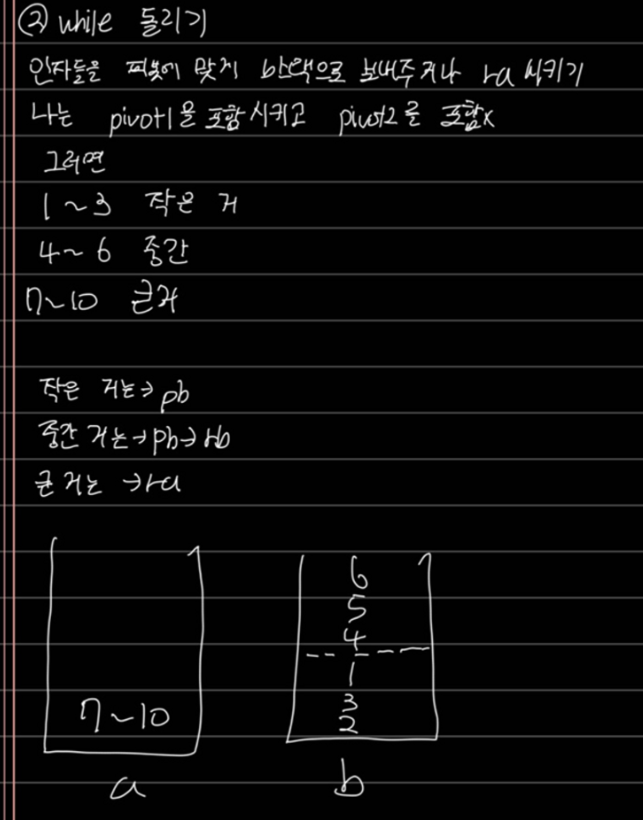 ② while 돌리기
인자들을 피봇에 맞게 b스택으로 보내주거나 ra 시키기
나는 pivot1을 포함시키고 pivot2를 포함x
그러면
1~3 작은 거
4~6 중간
7~10 큰거
작은 거는→pb
중간 거는→pb→rb
큰 거는 →ra
7~10
a
6
5
4
1
3
2
b